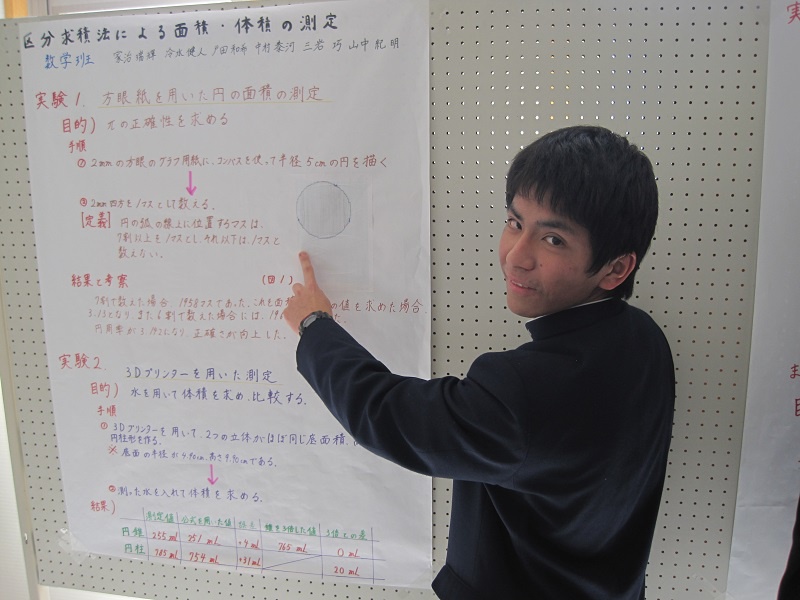 区分求積法による面積・体積の測定
数学班 冷水健人 戸田和希 中村泰河 三岩巧 山中勉明
実験1. 方眼紙を用いた円の面積の測定
目的) πの正確性を求める
手順
① 2mmの方眼のグラフ用紙に、コンパスを使って半径5cmの円を描く
② 2mm四方を1マスとして数える。
[定義] 円の紙の線上に位置するマスは、
7割以上を1マスとし、それ以下は、1マスと
数えない。
結果と考察
(図1)
7割で数えた場合、1958マスであった。これを面積 の値を求めた場合、
3.13となり、また6割で数えた場合には、196 た。
円周率が3.142になり、正確さが向上した。
実験2.
3Dプリンターを用いた測定
目的) 水を用いて体積を求め、比較する。
手順
① 3Dプリンターを用いて、2つの立体がほぼ同じ底面積、
円柱形を作る。
※ 底面の半径が4.90cm、高さ9.90cmである。
② 測った水を入れて体積を求める。
結果)
測定値 公式を用いた値 誤差 錐を3倍した値 3倍との差
円錐 255mL 251mL +4mL 765mL 0mL
円柱 785mL 754mL +31mL 20mL